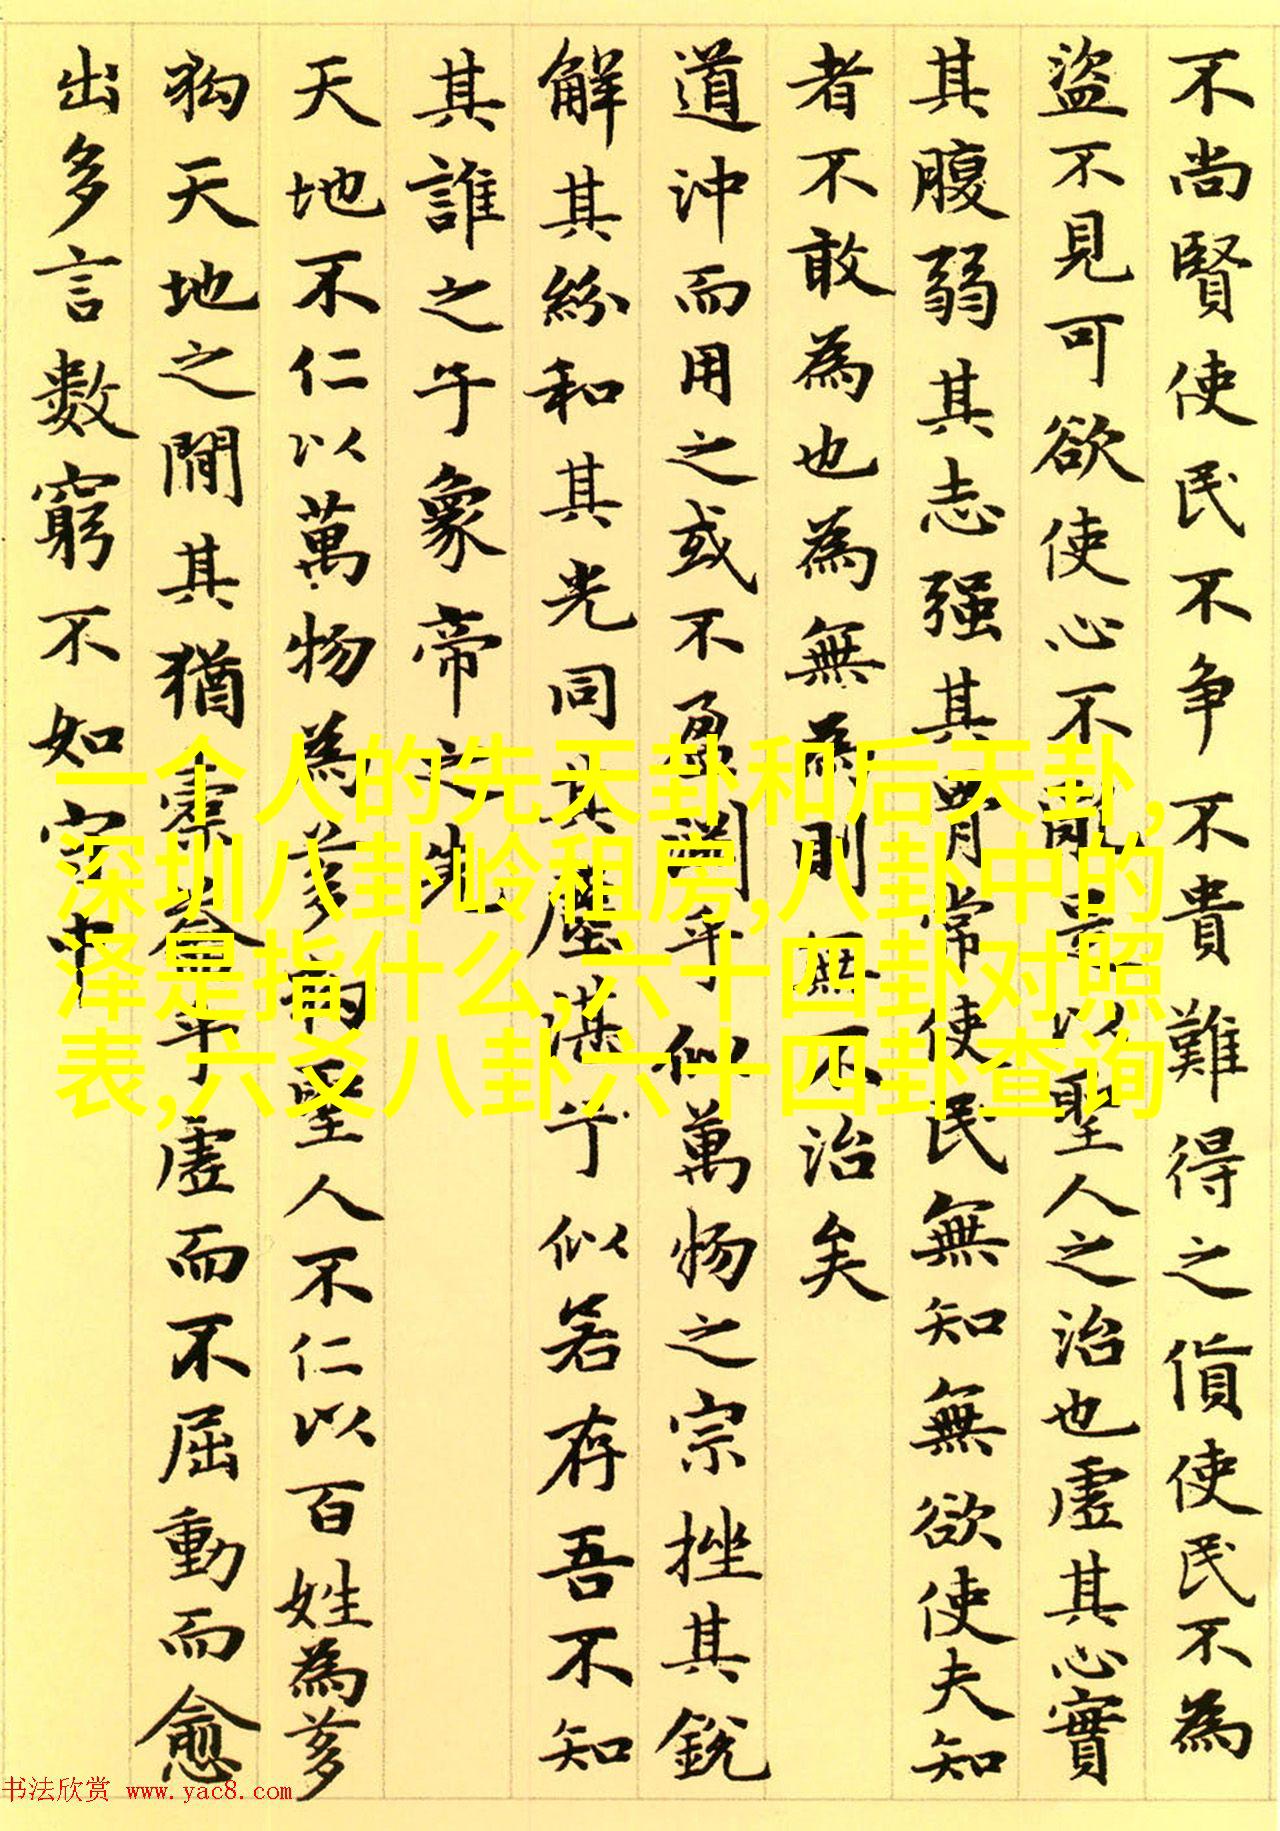 不尚賢使民不争不貴難得之貨使民不為
盜不見可欲使心不亂是以聖人之治也虛其心實
其腹弱其志强其骨常使民無知無欲使夫知
者不敢為也為無為則無不治矣
道沖而用之或不盈淵乎似萬物之宗挫其銳
解其紛和其光同其塵湛乎似若存吾不知
其誰之子象帝之先
天地不仁以萬物為芻狗聖人不仁以百姓為芻
狗天地之間其猶橐龠乎虛而不屈動而愈
出多言數窮不如守中
一个人的先天卦和后天卦,
深圳八卦岭租房,八卦中的
泽是指什么,六十四卦对照
表,六爻八卦六十四卦查询
书法欣赏 www.yac8.com